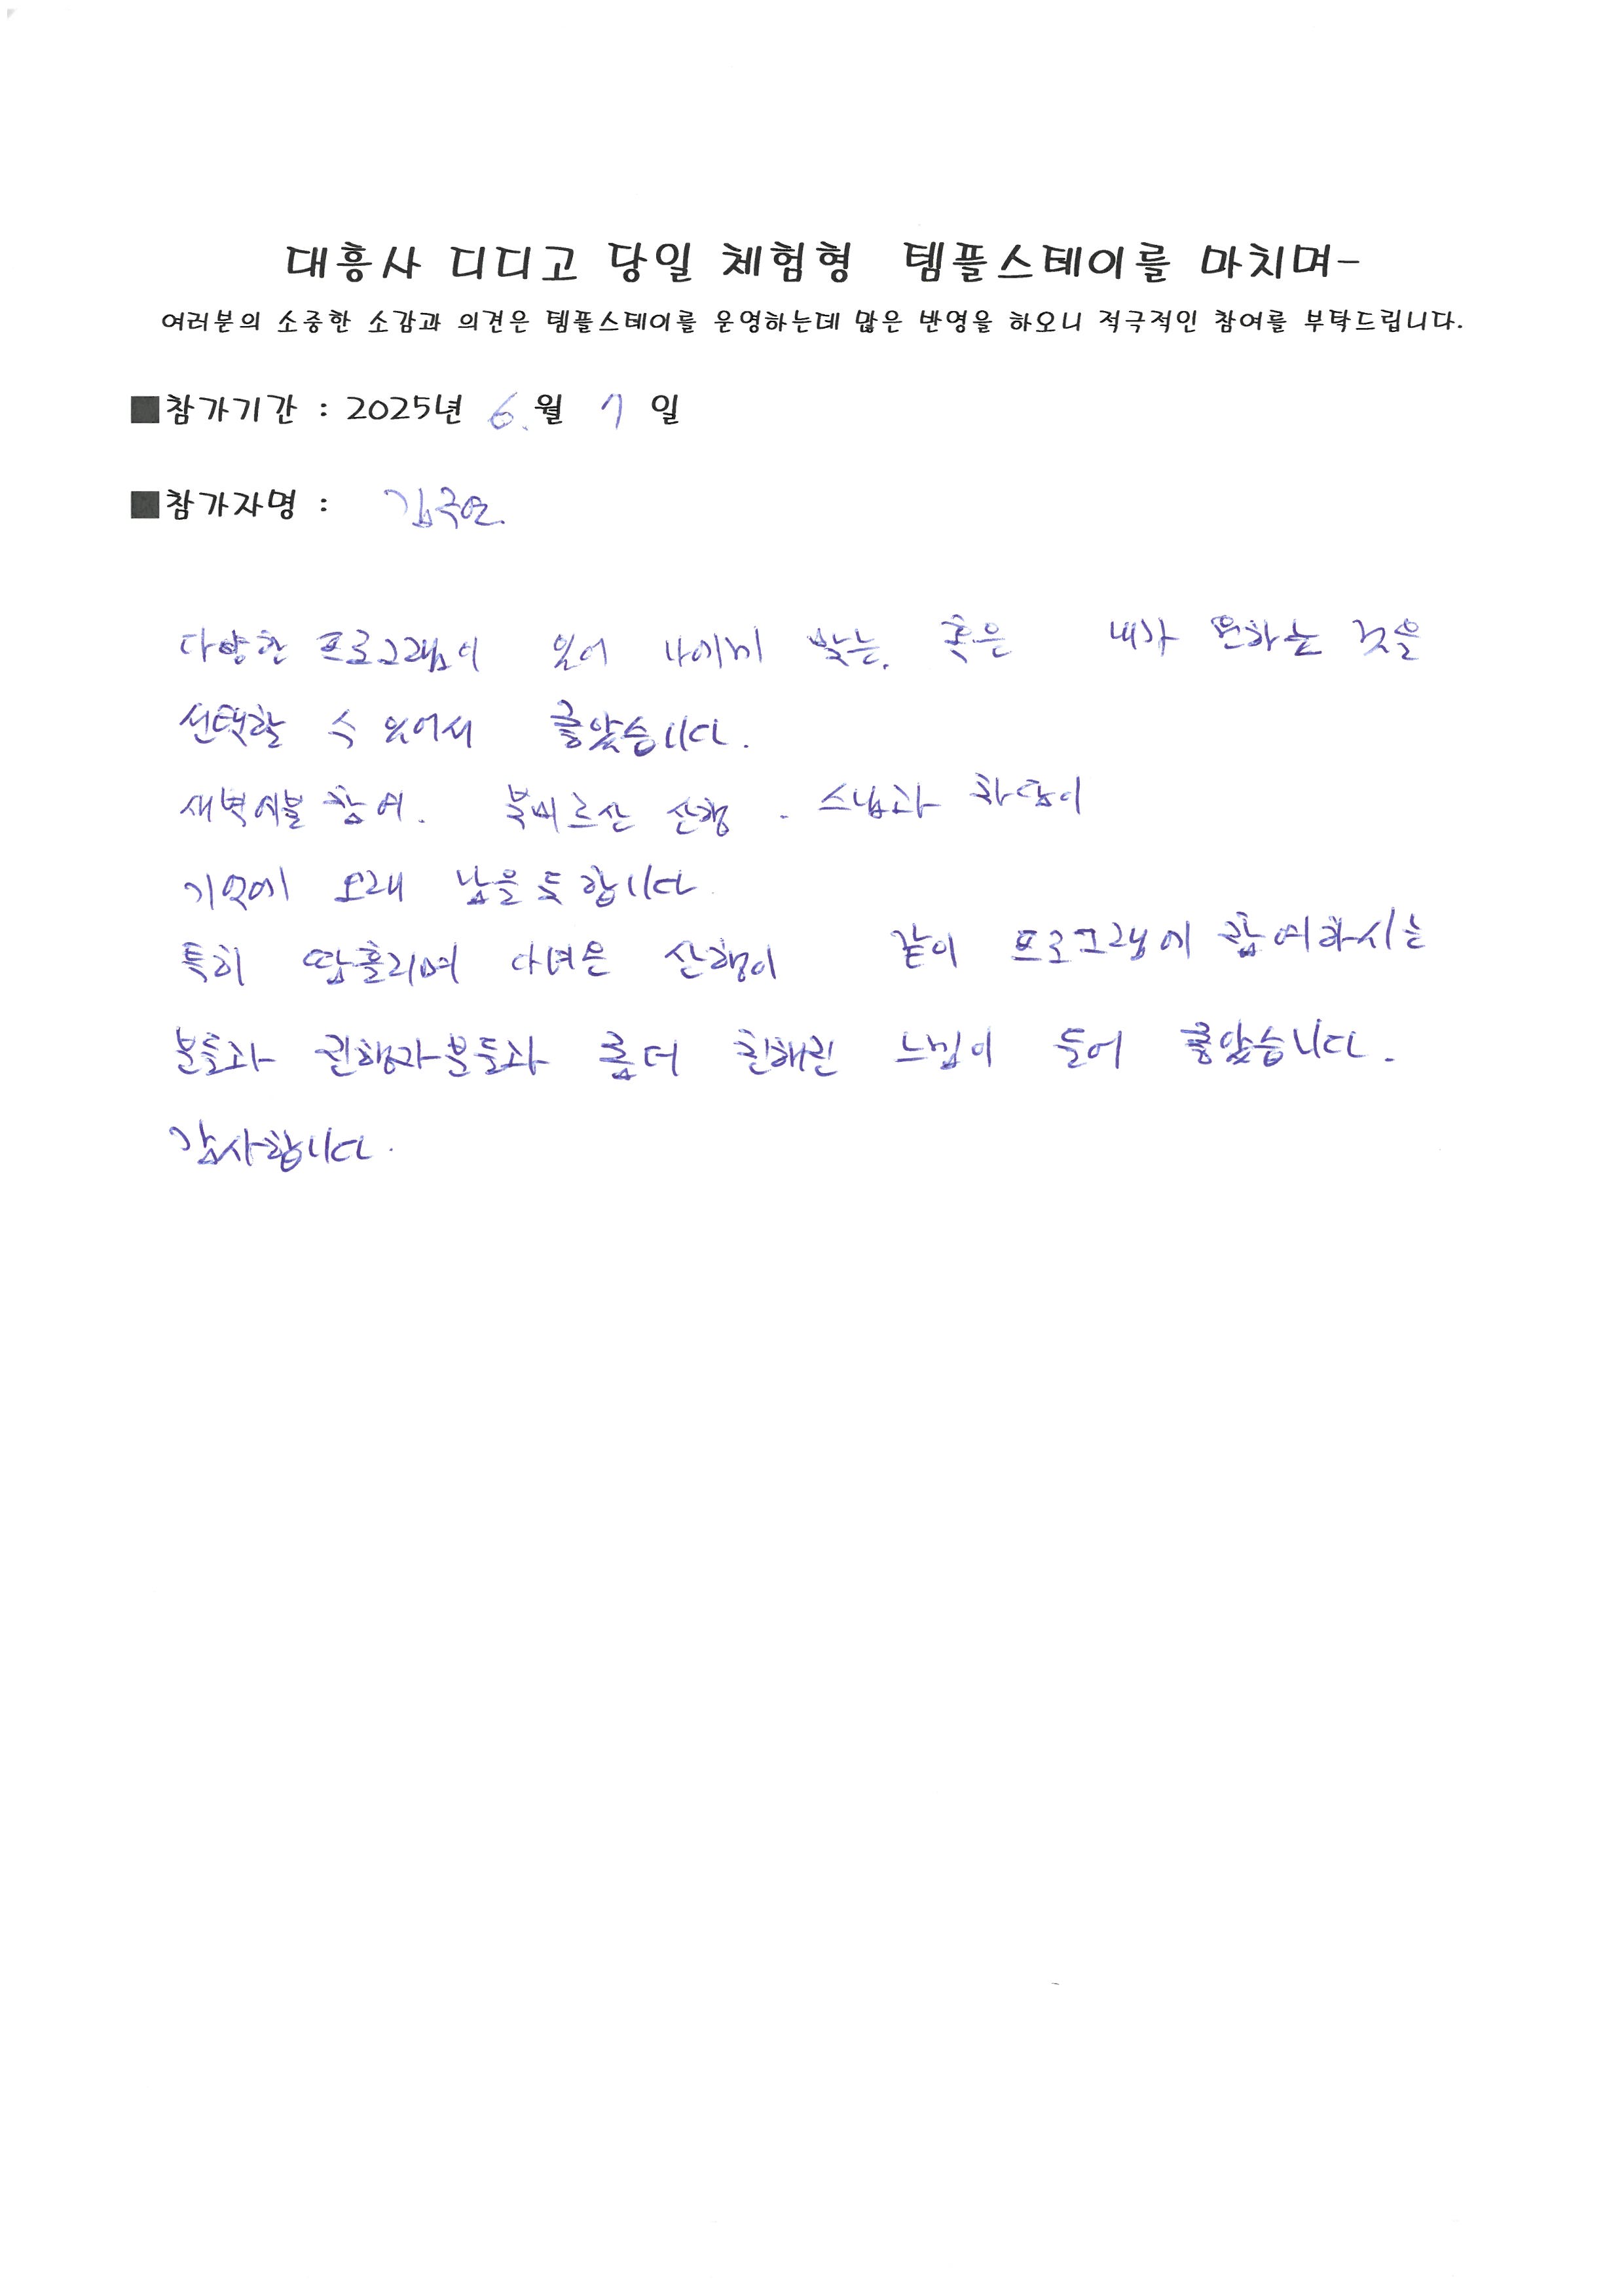 대흥사 디디고 당일 체험형 템플스테이를 마치며-
여러분의 소중한 소감과 의견은 템플스테이를 운영하는데 많은 반영을 하오니 적극적인 참여를 부탁드립니다.
■참가기간 : 2025년 6. 월 7 일
■참가자명 : 김국연
다양한 프로그램이 있어 나이에 맞는, 혹은 내가 원하는 것을
선택할 수 있어서 좋았습니다.
새벽예불 참여. 산행. 스님과 차담이
기억에 오래 남을듯 합니다
특히 땀흘리며 다녀온 산행이 같이 프로그램에 참여하시는
분들과 진행자분들과 좀더 친해진 느낌이 들어 좋았습니다.
감사합니다.